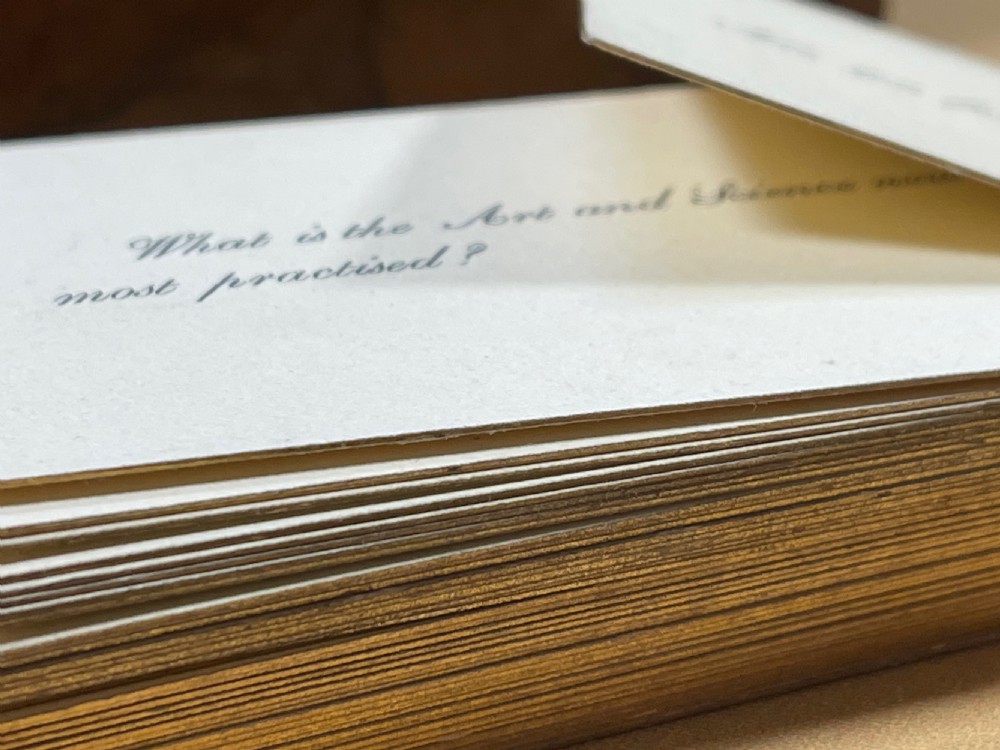 What is the Art and Science
most practised?